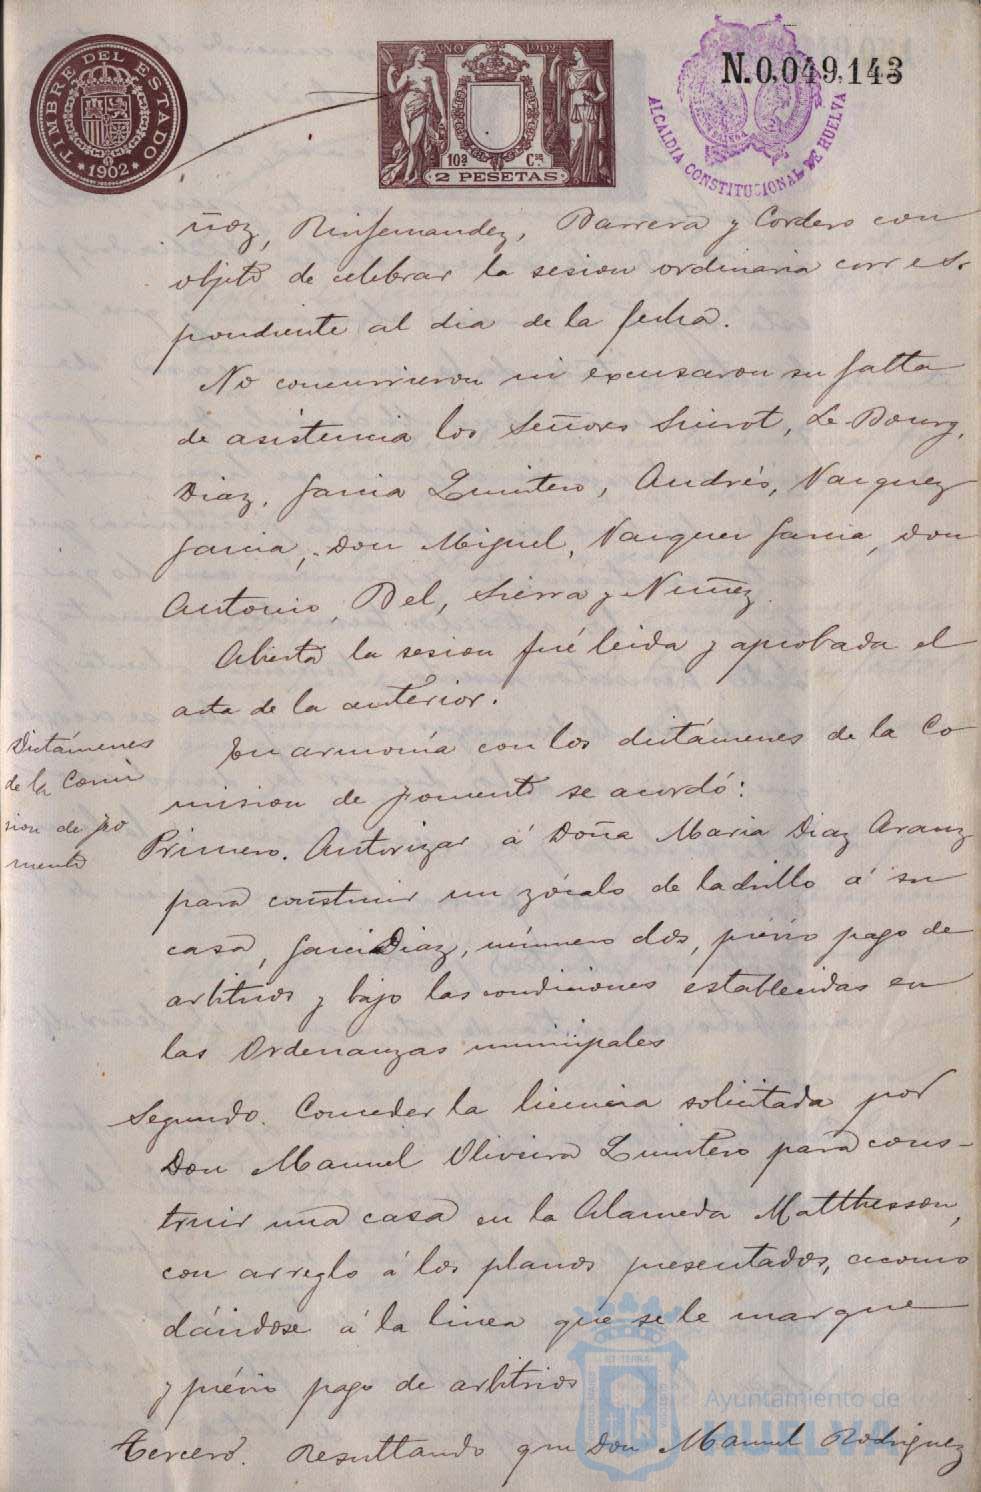 TIMBRE DEL ESTADO
* 1902 *
AÑO 1902
10ª Cse
2 PESETAS
N.0,049,143
ALCALDIA CONSTITUCIONAL DE HUELVA
ñoz, Rinfernandez, Barrera y Cordero con
objeto de celebrar la sesion ordinaria corres-
pondiente al dia de la fecha.
No concurrieron ni excusaron su falta
de asistencia los Señores Siurot, Le Bourg,
Diaz, Garcia Quintero, Andrés, Vazquez
Garcia, Don Miguel, Vazquez Garcia, Don
Antonio, Bel, Sierra y Nuñez.
Abierta la sesion fué leida y aprobada el
acta de la anterior.
Dictámenes
de la Comi
sion de Fo
mento
En armonía con los dictámenes de la Co
mision de Fomento se acordó:
Primero. Autorizar á Doña Maria Diaz Aranz
para construir un zócalo de ladrillo á su
casa, Garci Diaz, número dos, prévio pago de
arbitrios y bajo las condiciones establecidas en
las Ordenanzas municipales
Segundo. Conceder la licencia solicitada por
Don Manuel Oliveira Quintero para cons-
truir una casa en la Alameda Matthesson,
con arreglo á los planos presentados, acomo
dándose á la linea que se le marque
y prévio pago de arbitrios
Tercero. Resultando que Don Manuel Rodriguez
Ayuntamiento de
HUELVA